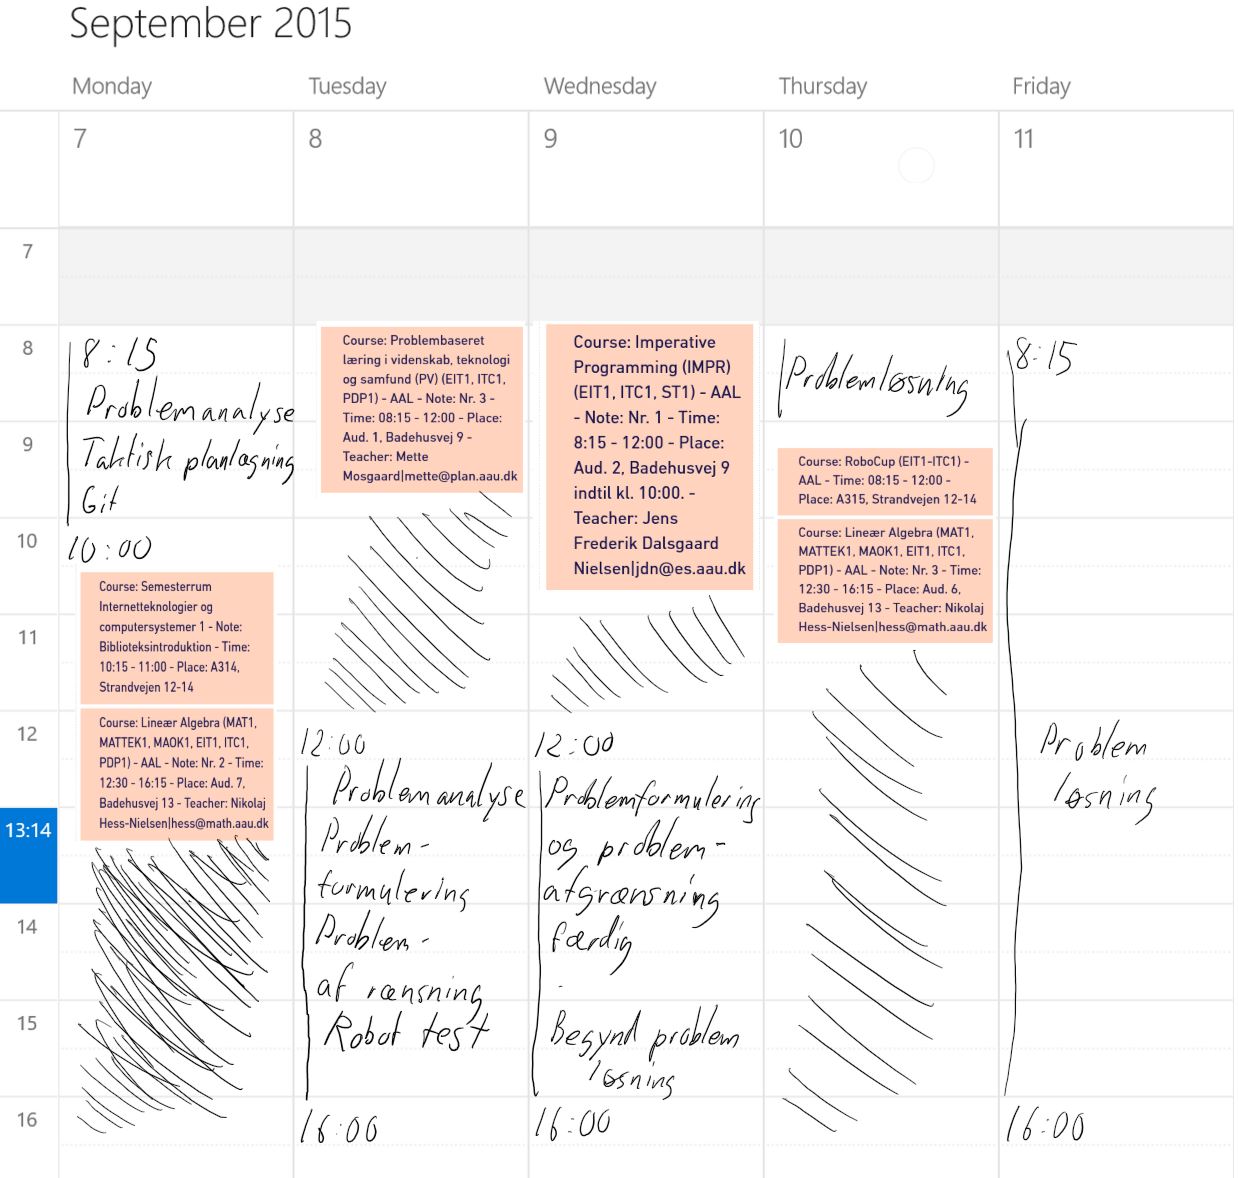 September 2015
Monday
Tuesday
Wednesday
Thursday
Friday
7
8
9
10
11
7
8
9
10
11
12
13:14
14
15
16
8:15
Problemanalyse
Taktisk planlægning
Git
10:00
Course: Semesterrum
Internetteknologier og
computersystemer 1 - Note:
Biblioteksintroduktion - Time:
10:15 - 11:00 - Place: A314,
Strandvejen 12-14
Course: Lineær Algebra (MAT1,
MATTEK1, MAOK1, EIT1, ITC1,
PDP1) - AAL - Note: Nr. 2 - Time:
12:30 - 16:15 - Place: Aud. 7,
Badehusvej 13 - Teacher: Nikolaj
Hess-Nielsen|hess@math.aau.dk
Course: Problembaseret
læring i videnskab, teknologi
og samfund (PV) (EIT1, ITC1,
PDP1) - AAL - Note: Nr. 3 -
Time: 08:15 - 12:00 - Place:
Aud. 1, Badehusvej 9 -
Teacher: Mette
Mosgaard|mette@plan.aau.dk
12:00
Problemanalyse
Problem-
formulering
Problem-
af rænsning
Robot test
16:00
Course: Imperative
Programming (IMPR)
(EIT1, ITC1, ST1) - AAL
- Note: Nr. 1 - Time:
8:15 - 12:00 - Place:
Aud. 2, Badehusvej 9
indtil kl. 10:00. -
Teacher: Jens
Frederik Dalsgaard
Nielsen|jdn@es.aau.dk
12:00
Problemformulering
og problem-
afgrænsning
færdig
-
Begynd problem
løsning
16:00
Problemløsning
Course: RoboCup (EIT1-ITC1) -
AAL - Time: 08:15 - 12:00 -
Place: A315, Strandvejen 12-14
Course: Lineær Algebra (MAT1,
MATTEK1, MAOK1, EIT1, ITC1,
PDP1) - AAL - Note: Nr. 3 - Time:
12:30 - 16:15 - Place: Aud. 6,
Badehusvej 13 - Teacher: Nikolaj
Hess-Nielsen|hess@math.aau.dk
8:15
Problem
løsning
16:00